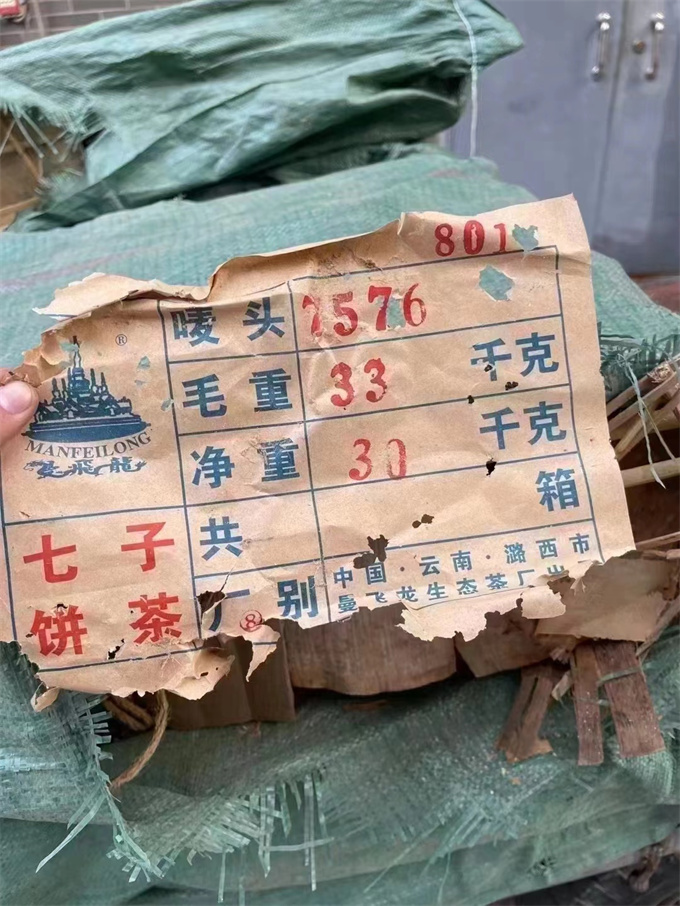 801
唛头 7576
毛重 33 千克
净重 30 千克
共 箱
厂别 中国·云南·潞西市
曼飞龙生态茶厂出
⑧
®
MANFEILONG
曼飛龍
七子
饼茶